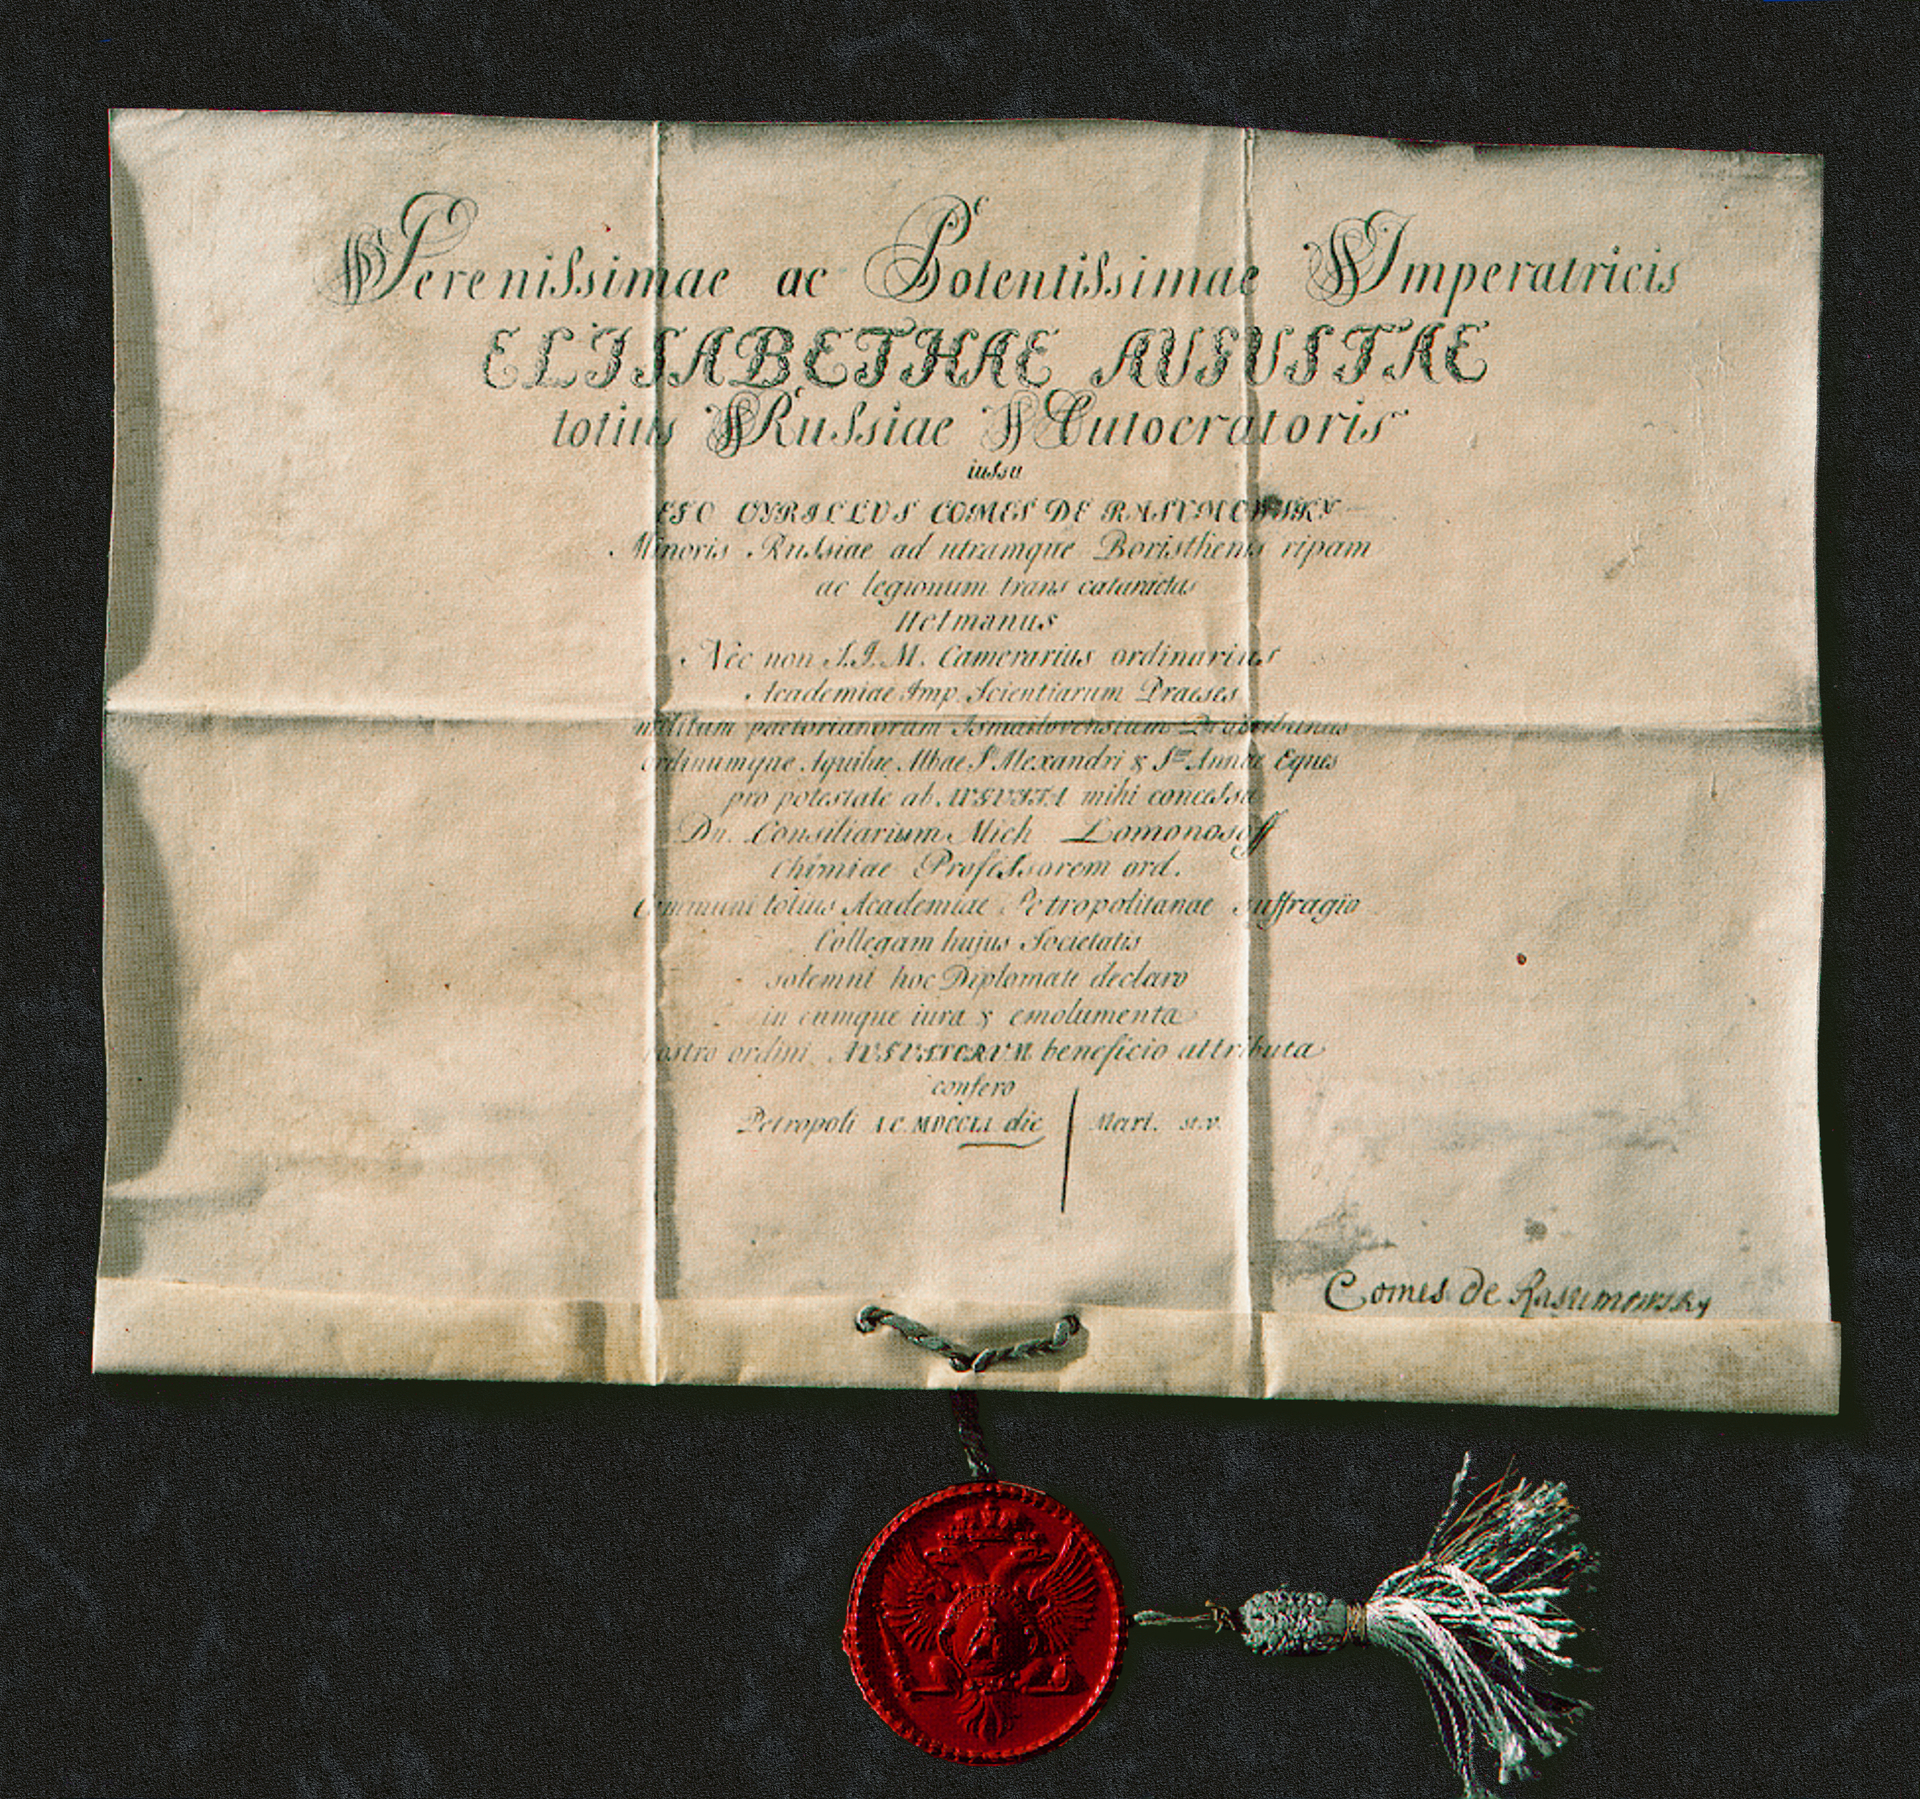 Serenissimae ac Potentissimae Imperatricis
ELISABETHAE AUGUSTAE
totius Russiae Autocratoris
iussu
EGO CYRILLUS COMES DE RASUMOWSKY
Minoris Russiae ad utramque Boristhenis ripam
ac legionum trans cataractas
Hetmanus
Nec non S.I.M. Camerarius ordinarius
Academiae Imp. Scientiarum Praeses
militum
ordinumque Aquilae Albae St Alexandri & Stae Annae Eques
pro potestate ab AUGUSTA mihi concessa
Dn. Consiliarium Mich Lomonosoff
Chimiae Professorem ord.
Communi totius Academiae Petropolitanae suffragio
Collegam hujus Societatis
solemni hoc Diplomate declaro
in eumque iura & emolumenta
nostro ordini AUGUSTORUM beneficio attributa
confero
Petropoli MDCCLI die Mart. st.v.
Comes de Rasumowsky